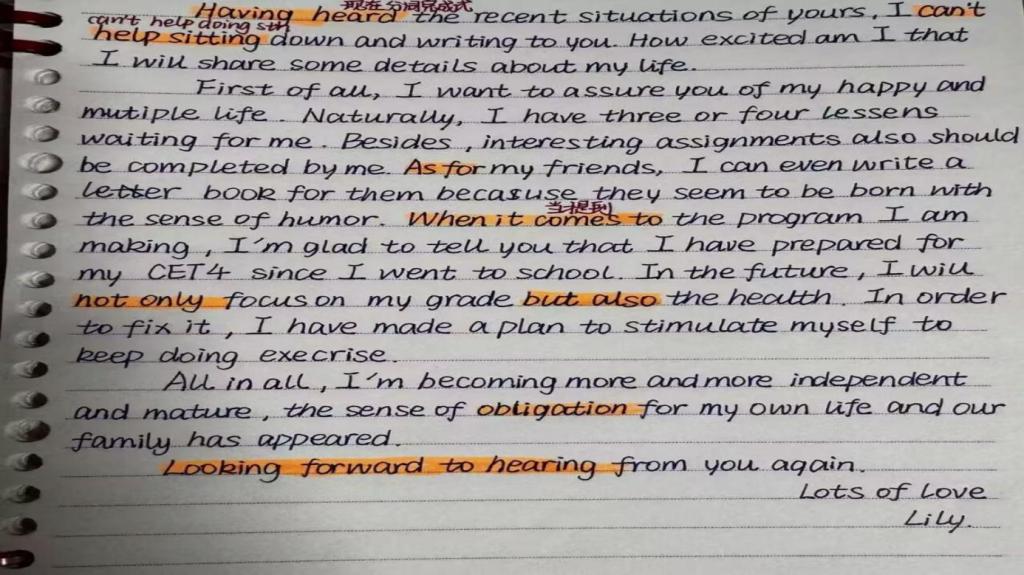 现在分词完成式
Having heard the recent situations of yours, I can't
can't help doing sth
help sitting down and writing to you. How excited am I that
I will share some details about my life.
First of all, I want to assure you of my happy and
mutiple life. Naturally, I have three or four lessens
waiting for me. Besides, interesting assignments also should
be completed by me. As for my friends, I can even write a
letter book for them becasuse they seem to be born with
当提到
the sense of humor. When it comes to the program I am
making, I'm glad to tell you that I have prepared for
my CET4 since I went to school. In the future, I will
not only focus on my grade but also the health. In order
to fix it, I have made a plan to stimulate myself to
keep doing execrise.
All in all, I'm becoming more and more independent
and mature, the sense of obligation for my own life and our
family has appeared.
Looking forward to hearing from you again.
Lots of Love
Lily.